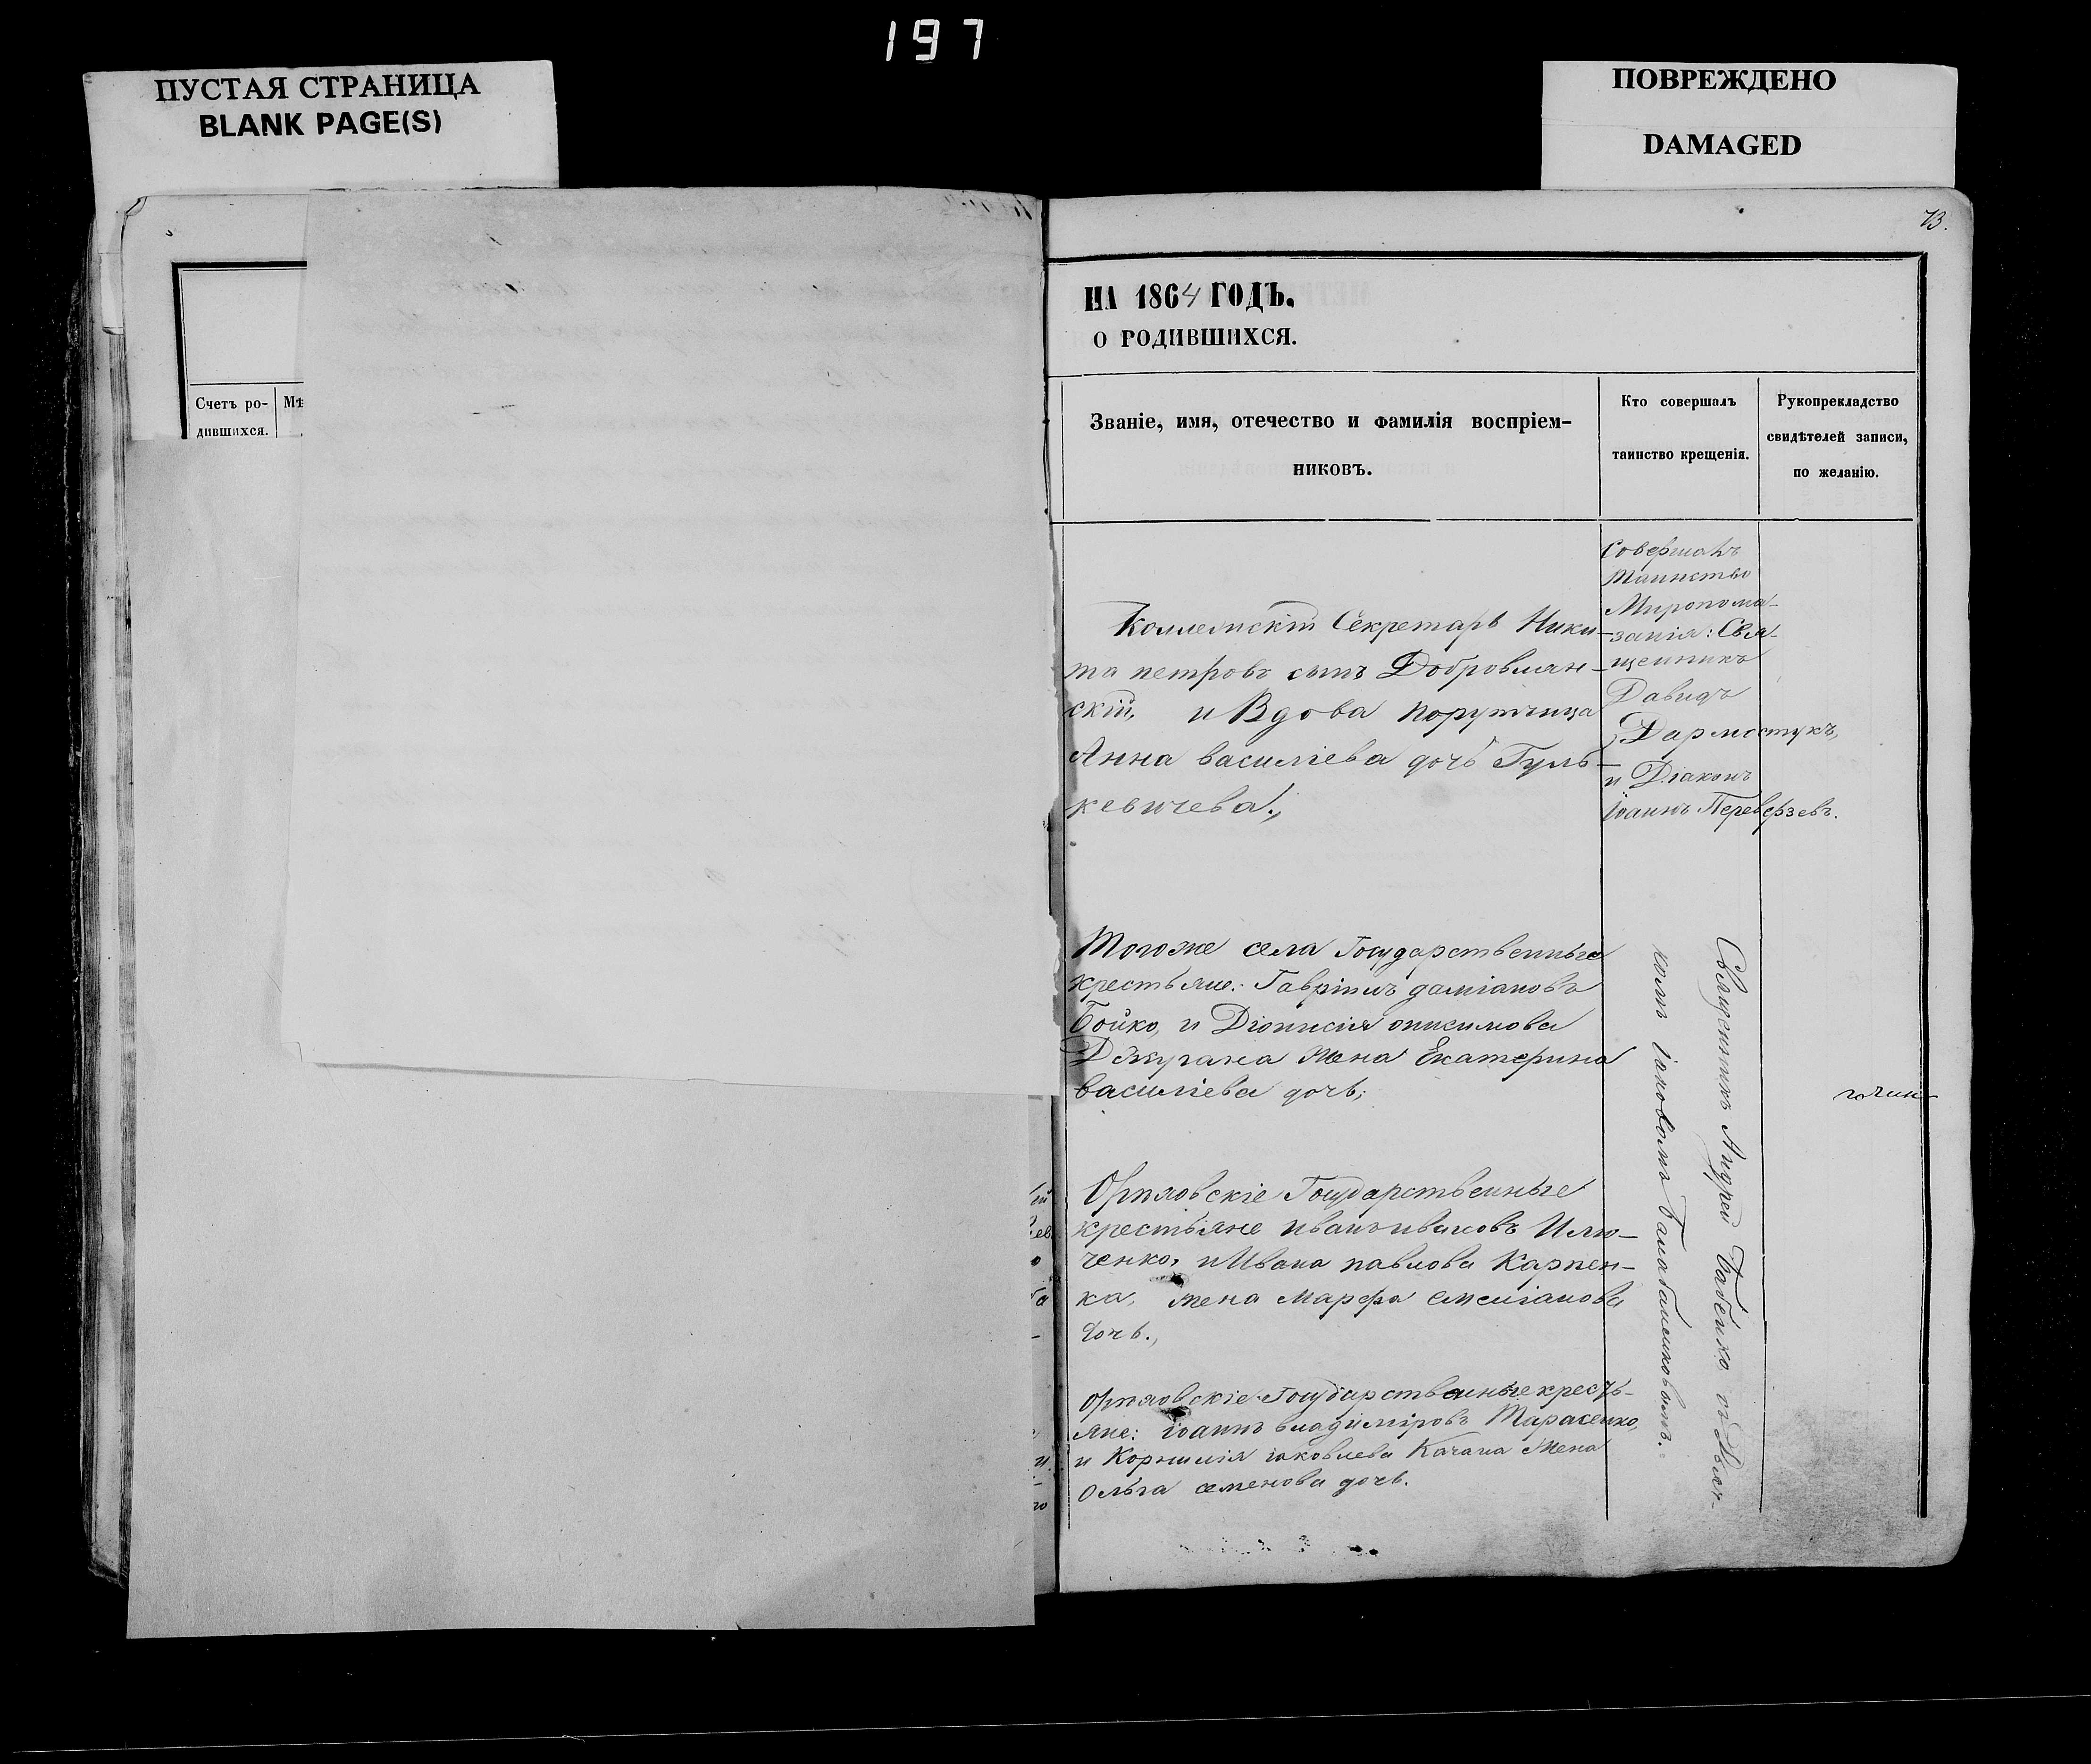 197
ПУСТАЯ СТРАНИЦА
BLANK PAGE(S)
ПОВРЕЖДЕНО
DAMAGED
73.
Счетъ ро-
дившихся.
Мѣ
НА 1864 ГОДЪ.
О РОДИВШИХСЯ.
Званіе, имя, отечество и фамилія воспріем-
никовъ.
Кто совершалъ
таинство крещенія.
Рукоприкладство
свидѣтелей записи,
по желанію.
Коллежскій Секретарь Ники-
та петровъ сынъ Добровлян-
скій, и Вдова поручица
Анна василіева дочь Гуль-
кевичева.,
Совершалъ
таинство
Миропома-
занія: Свя-
щенникъ
Давидъ
Дармостукъ,
и Діаконъ
Іоаннъ Переверзевъ.
Тогоже села Государственные
крестьяне: Гавріилъ даміановъ
Бойко, и Діонисія онисимова
Джугана жена Екатерина
василіева дочь;
Государственные
крестьяне иванъ ивановъ Илю-
ченко, и Ивана павлова Карпен-
ка, жена Марфа емеліанова
дочь.,
Государственные кресть-
яне: іоаннъ владиміровъ Тарасенко,
и Корнилія іаковлева Качана жена
Ольга семенова дочь.
Священникъ Андрей Бабенко съ Дьяч-
комъ